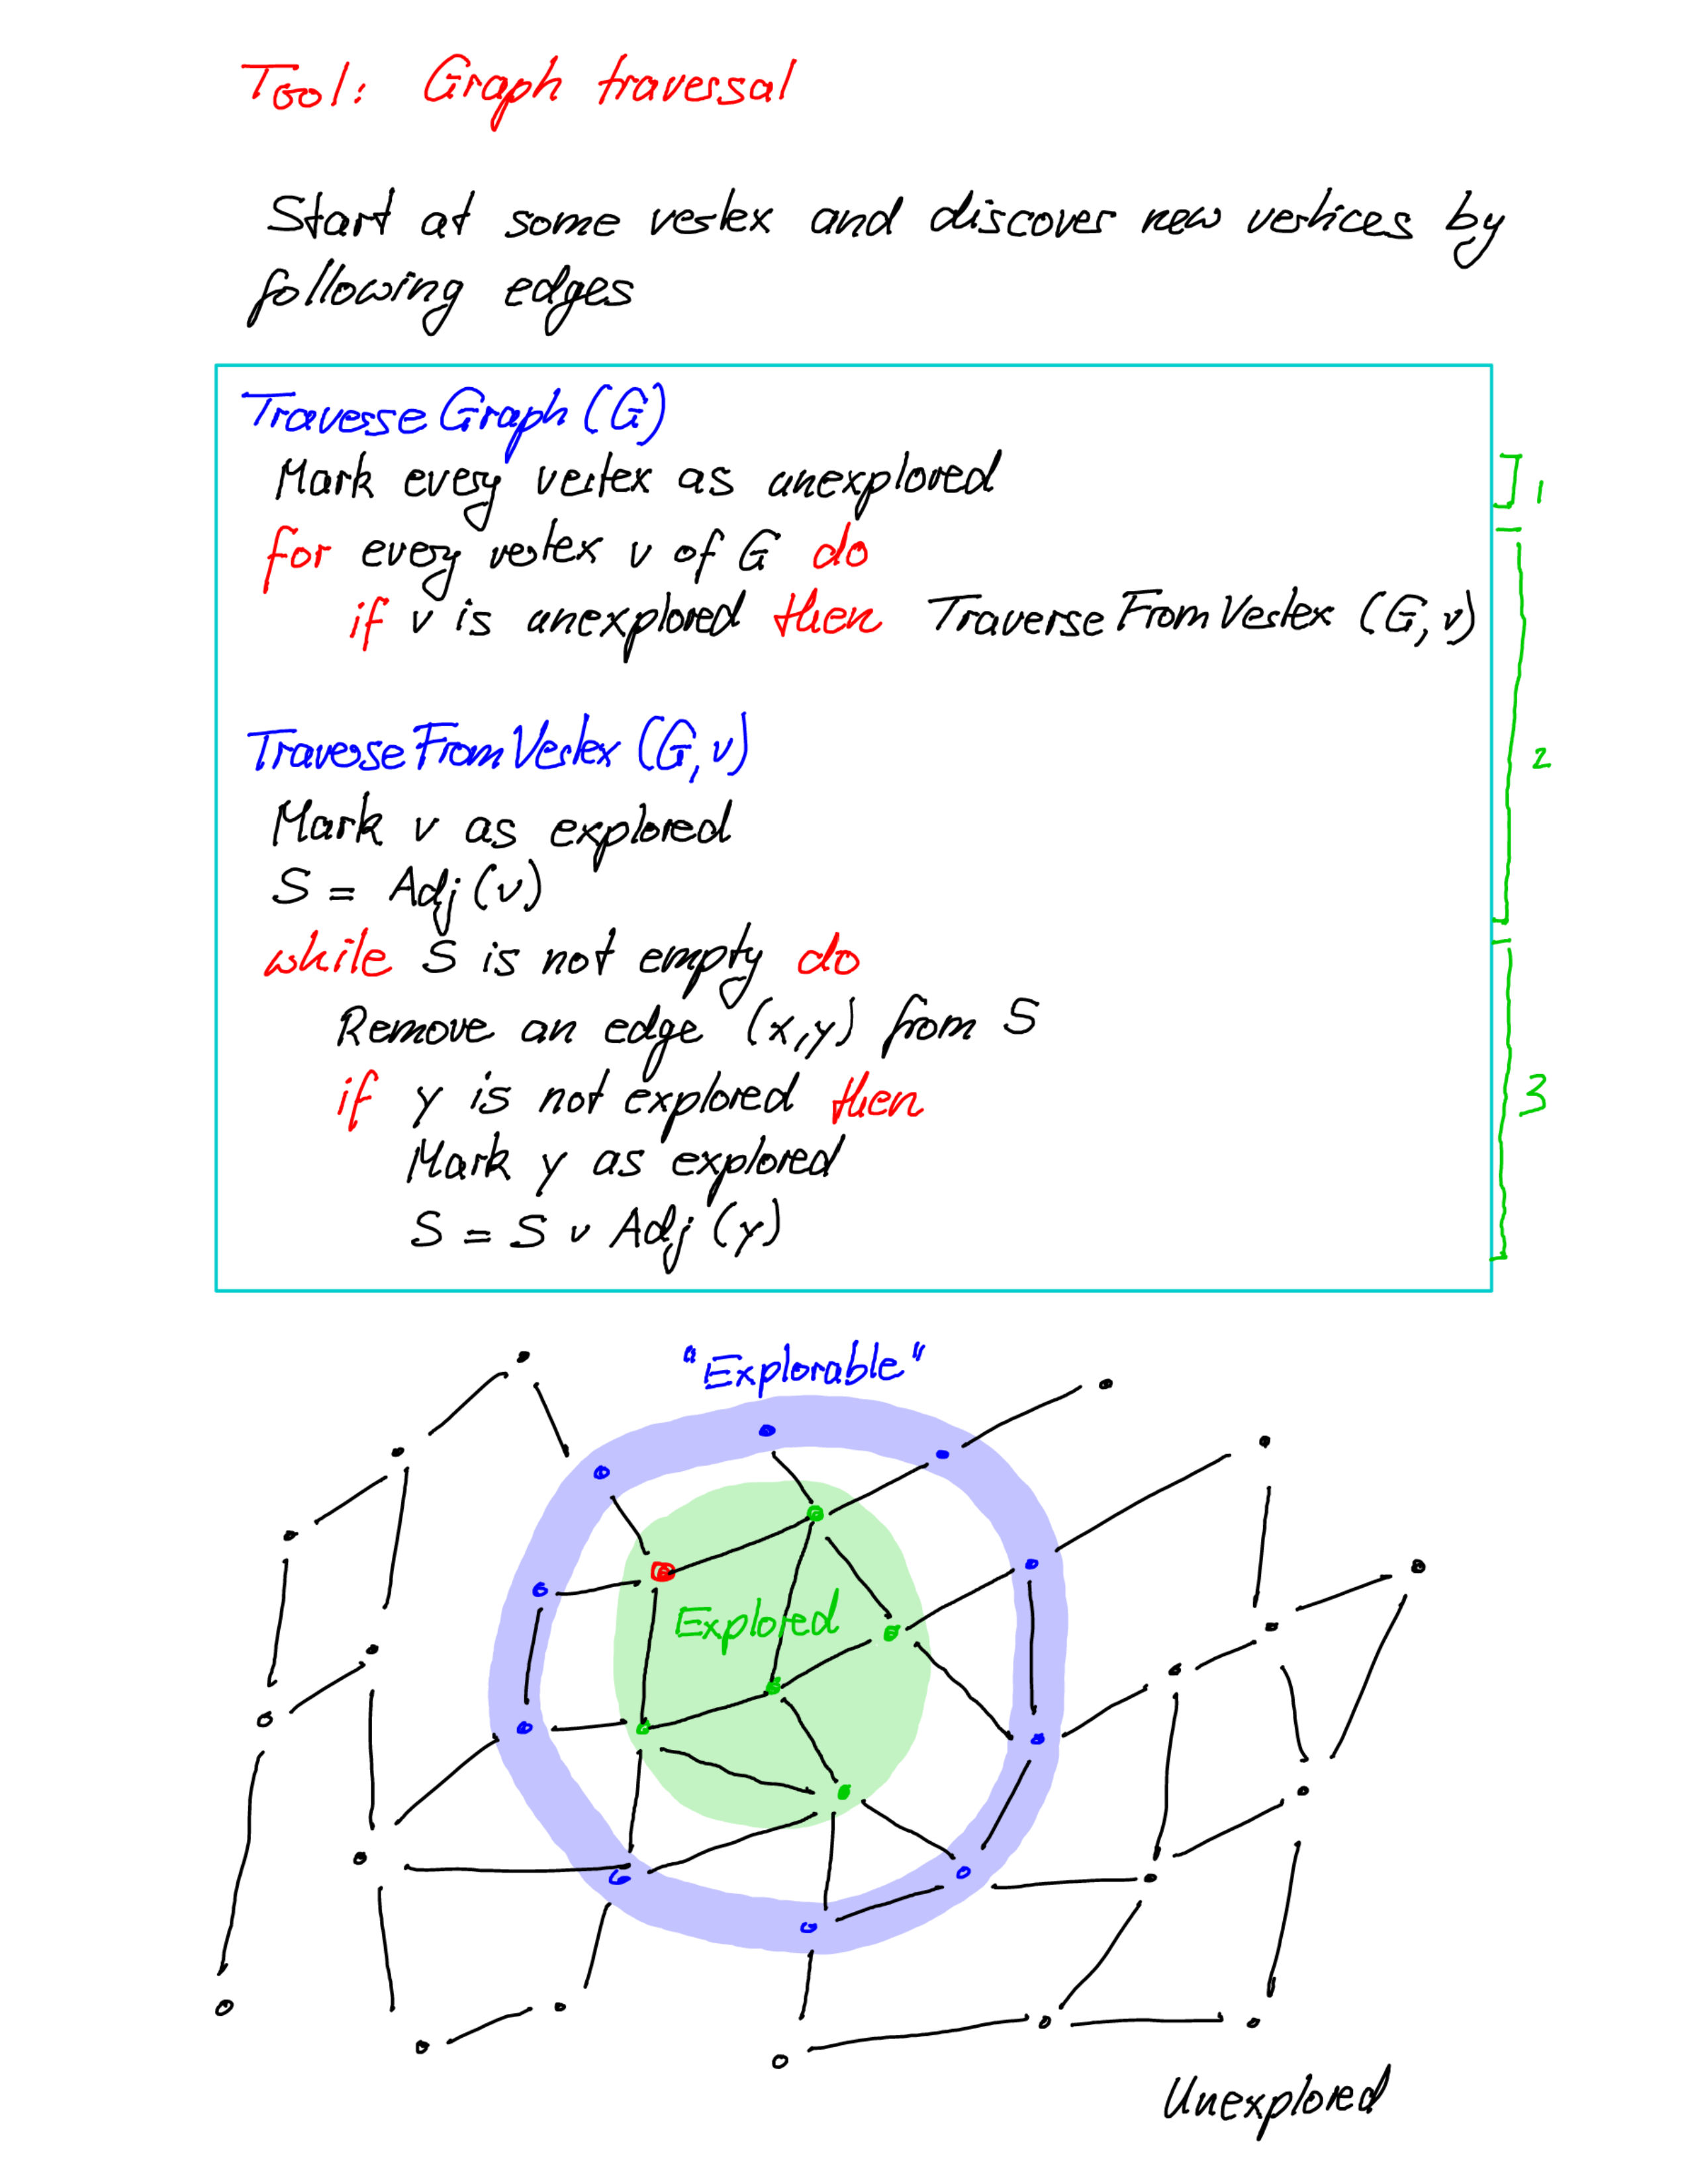 Tool: Graph traversal
Start at some vertex and discover new vertices by
following edges
TraverseGraph(G)
Mark every vertex as unexplored
1
for every vertex v of G do
if v is unexplored then TraverseFromVertex (G, v)
2
TraverseFromVertex (G, v)
Mark v as explored
S = Adj (v)
while S is not empty do
Remove an edge (x, y) from S
if y is not explored then
3
Mark y as explored
S = S ∪ Adj (y)
"Explorable"
Explored
Unexplored